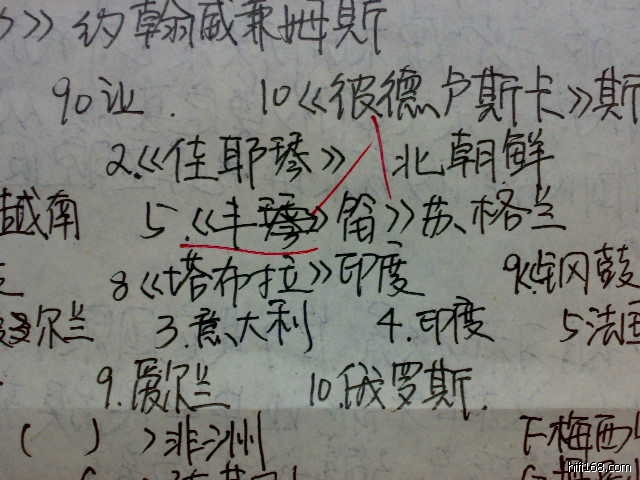 》约翰威廉姆斯
90让. 10《彼德卢斯卡》斯
2.《佳耶琴》 北朝鲜
越南 5.《丰琴》笛》苏格兰
8《塔布拉》印度 9《钢鼓
尔兰 3.意大利 4.印度 5法国
9.爱尔兰 10.俄罗斯.
( ) 》非洲 下梅西
hifi168.com